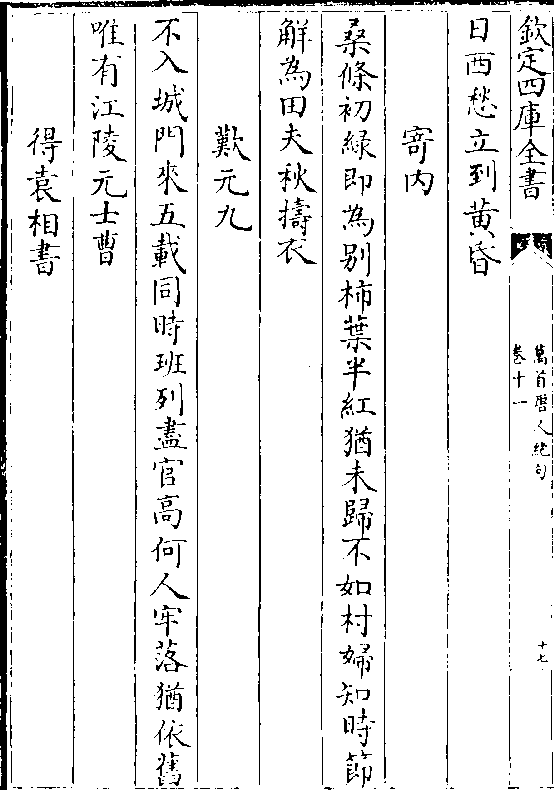 欽定四庫全書
萬首唐人絶句
卷十一
十七
日西愁立到黄昏
寄内
桑條初緑即為别柿葉半紅猶未歸不如村婦知時節
解為田夫秋擣衣
歎元九
不入城門來五載同時班列盡官高何人牢落猶依舊
唯有江陵元士曹
得袁相書